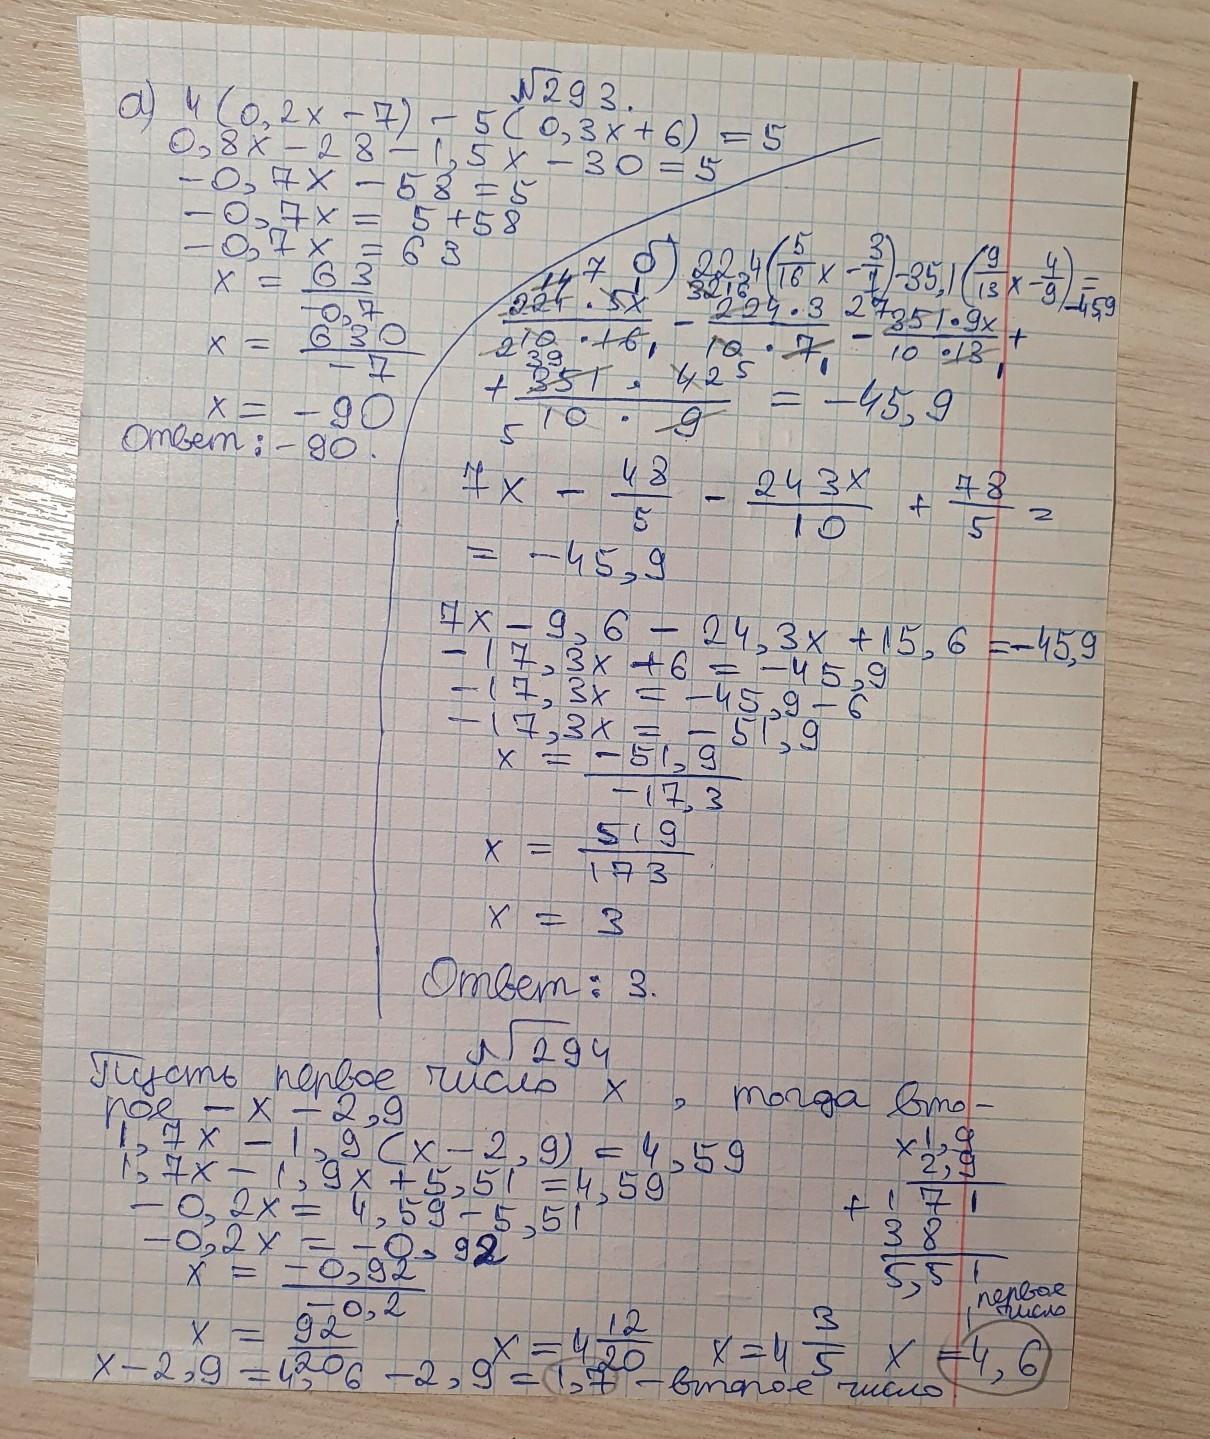 №293.
а) 4(0,2x-7) - 5(0,3x+6) = 5
0,8x - 28 - 1,5x - 30 = 5
-0,7x - 58 = 5
-0,7x = 5+58
-0,7x = 63
x = 63/-0,7
x = 630/-7
x = -90
Ответ: -90.
б) 22,4(5/16 x - 3/7) - 35,1(9/13 x - 4/9) = -45,9
224·5x/10·16 - 224·3/10·7 - 351·9x/10·13 +
+ 351·4/10·9 = -45,9
7x - 48/5 - 243x/10 + 78/5 =
= -45,9
7x - 9,6 - 24,3x + 15,6 = -45,9
-17,3x + 6 = -45,9
-17,3x = -45,9 - 6
-17,3x = -51,9
x = -51,9/-17,3
x = 519/173
x = 3
Ответ: 3.
№294
Пусть первое число x, тогда вто-
рое - x - 2,9
1,7x - 1,9(x - 2,9) = 4,59
1,7x - 1,9x + 5,51 = 4,59
-0,2x = 4,59 - 5,51
-0,2x = -0,92
x = -0,92/-0,2
x 1,9
2,9
+ 171
38
5,51
x = 92/20 x = 4 12/20 x = 4 3/5 x = 4,6
первое число
x - 2,9 = 4,6 - 2,9 = 1,7 - второе число